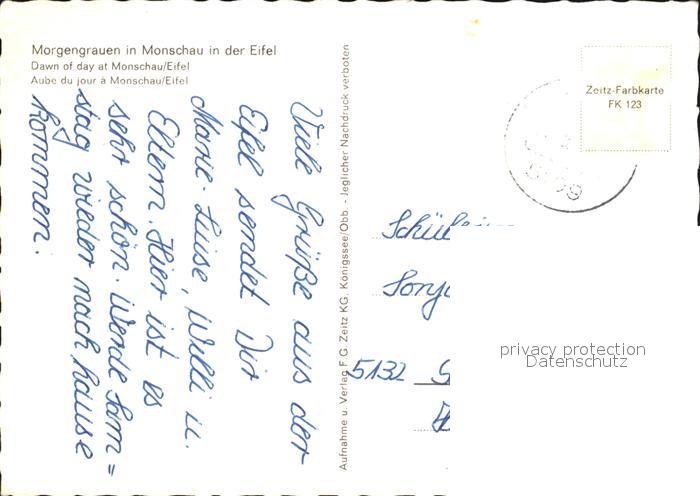 Morgengrauen in Monschau in der Eifel
Dawn of day at Monschau/Eifel
Aube du jour à Monschau/Eifel
Viele Grüße aus der
Eifel sendet Dir
Marie-Luise, Willi u.
Eltern. Hier ist es
sehr schön. Werde Sam=
stag wieder nach hause
kommen.
Aufnahme u. Verlag F. G. Zeitz KG, Königssee/Obb. - Jeglicher Nachdruck verboten
Zeitz-Farbkarte
FK 123
5132
privacy protection
Datenschutz